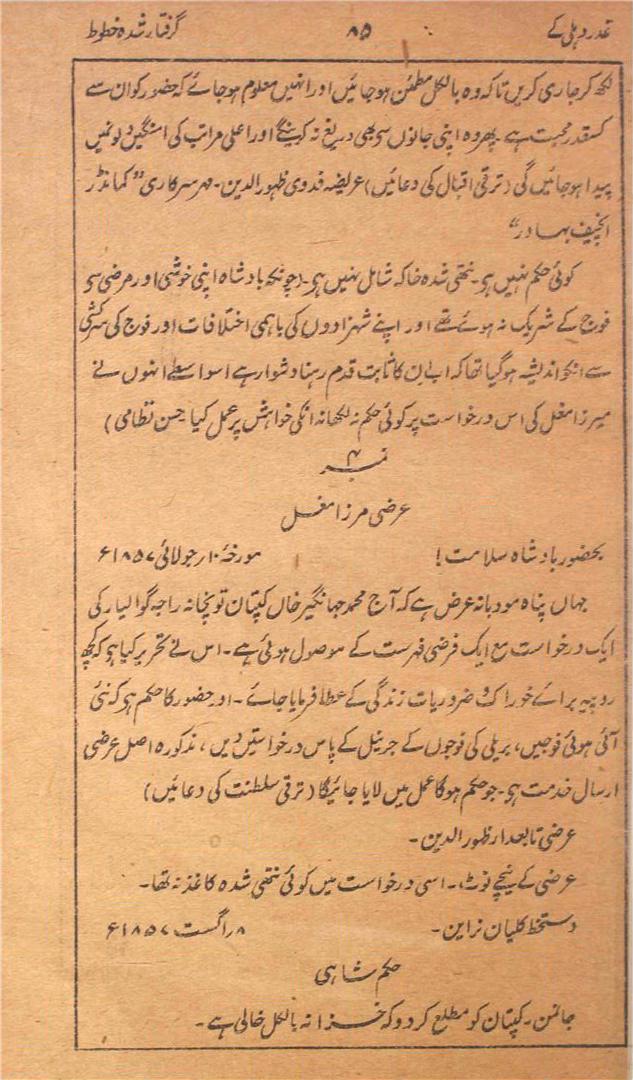 غدر دہلی کے ۸۵ گرفتار شدہ خطوط
لکھ کر جاری کریں تاکہ وہ بالکل مطمئن ہو جائیں اور انہیں معلوم ہو جائے کہ حضور کو ان سے
کسقدر محبت ہے۔ پھر وہ اپنی جانوں سو بھی دریغ نہ کرینگے اور اعلی مراتب کی امنگیں دلونمیں
پیدا ہو جائیں گی (ترقی اقبال کی دعائیں) عریضہ فدوی ظہور الدین۔ مہر سرکاری "کمانڈر
انچیف بہادر"
کوئی حکم نہیں ہو۔ نتھی شدہ خاکہ شامل نہیں ہو۔ (چونکہ بادشاہ اپنی خوشی اور مرضی سو
فوج کے شریک نہ ہوئے تھے اور اپنے شہزادوں کی باہمی اختلافات اور فوج کی سرکشی
سے انکو اندیشہ ہو گیا تھا کہ اب ان کا ثابت قدم رہنا دشوار ہے اسواسطے انہوں نے
میرزا مغل کی اس درخواست پر کوئی حکم نہ لکھا نہ انکی خواہش پر عمل کیا حسن نظامی)
نمبر ۴
عرضی مرزا مغل
بحضور بادشاہ سلامت! مورخہ ۱۰ جولائی ۱۸۵۷ء
جہاں پناہ مودبانہ عرض ہے کہ آج محمد جہانگیر خاں کپتان توپخانہ راجہ گوالیار کی
ایک درخواست مع ایک فرضی فہرست کے موصول ہوئی ہے۔ اس نے تحریر کیا ہو کہ کچھ
روپیہ برائے خوراک و ضروریات زندگی کے عطا فرمایا جائے۔ اور حضور کا حکم ہو کہ نئی
آئی ہوئی فوجیں، بریلی کی فوجوں کے جرنیل کے پاس درخواستیں دیں، مذکورہ اصل عرضی
ارسال خدمت ہو۔ جو حکم ہوگا عمل میں لایا جائیگا (ترقی سلطنت کی دعائیں)
عرضی تابعدار ظہور الدین۔
عرضی کے نیچے نوٹ،۔ اسی درخواست میں کوئی نتھی شدہ کاغذ نہ تھا۔
دستخط کلیان نراین۔ ۸ اگست ۱۸۵۷ء
حکم شاہی
جانمن۔ کپتان کو مطلع کر دو کہ خزانہ بالکل خالی ہے۔